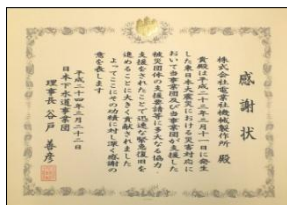 感謝状
株式会社電業社機械製作所 殿
貴殿は平成二十三年三月十一日に発生
した東日本大震災における災害対応に
おいて当事業団及び当事業団が支援した
被災団体の支援要請等に多大なる協力
支援をされたことで迅速な緊急復旧を
進めることに大きく貢献されました
よってここにその功績に対し深く感謝の
意を表します
平成二十四年三月二十二日
日本下水道事業団
理事長 谷戸善彦